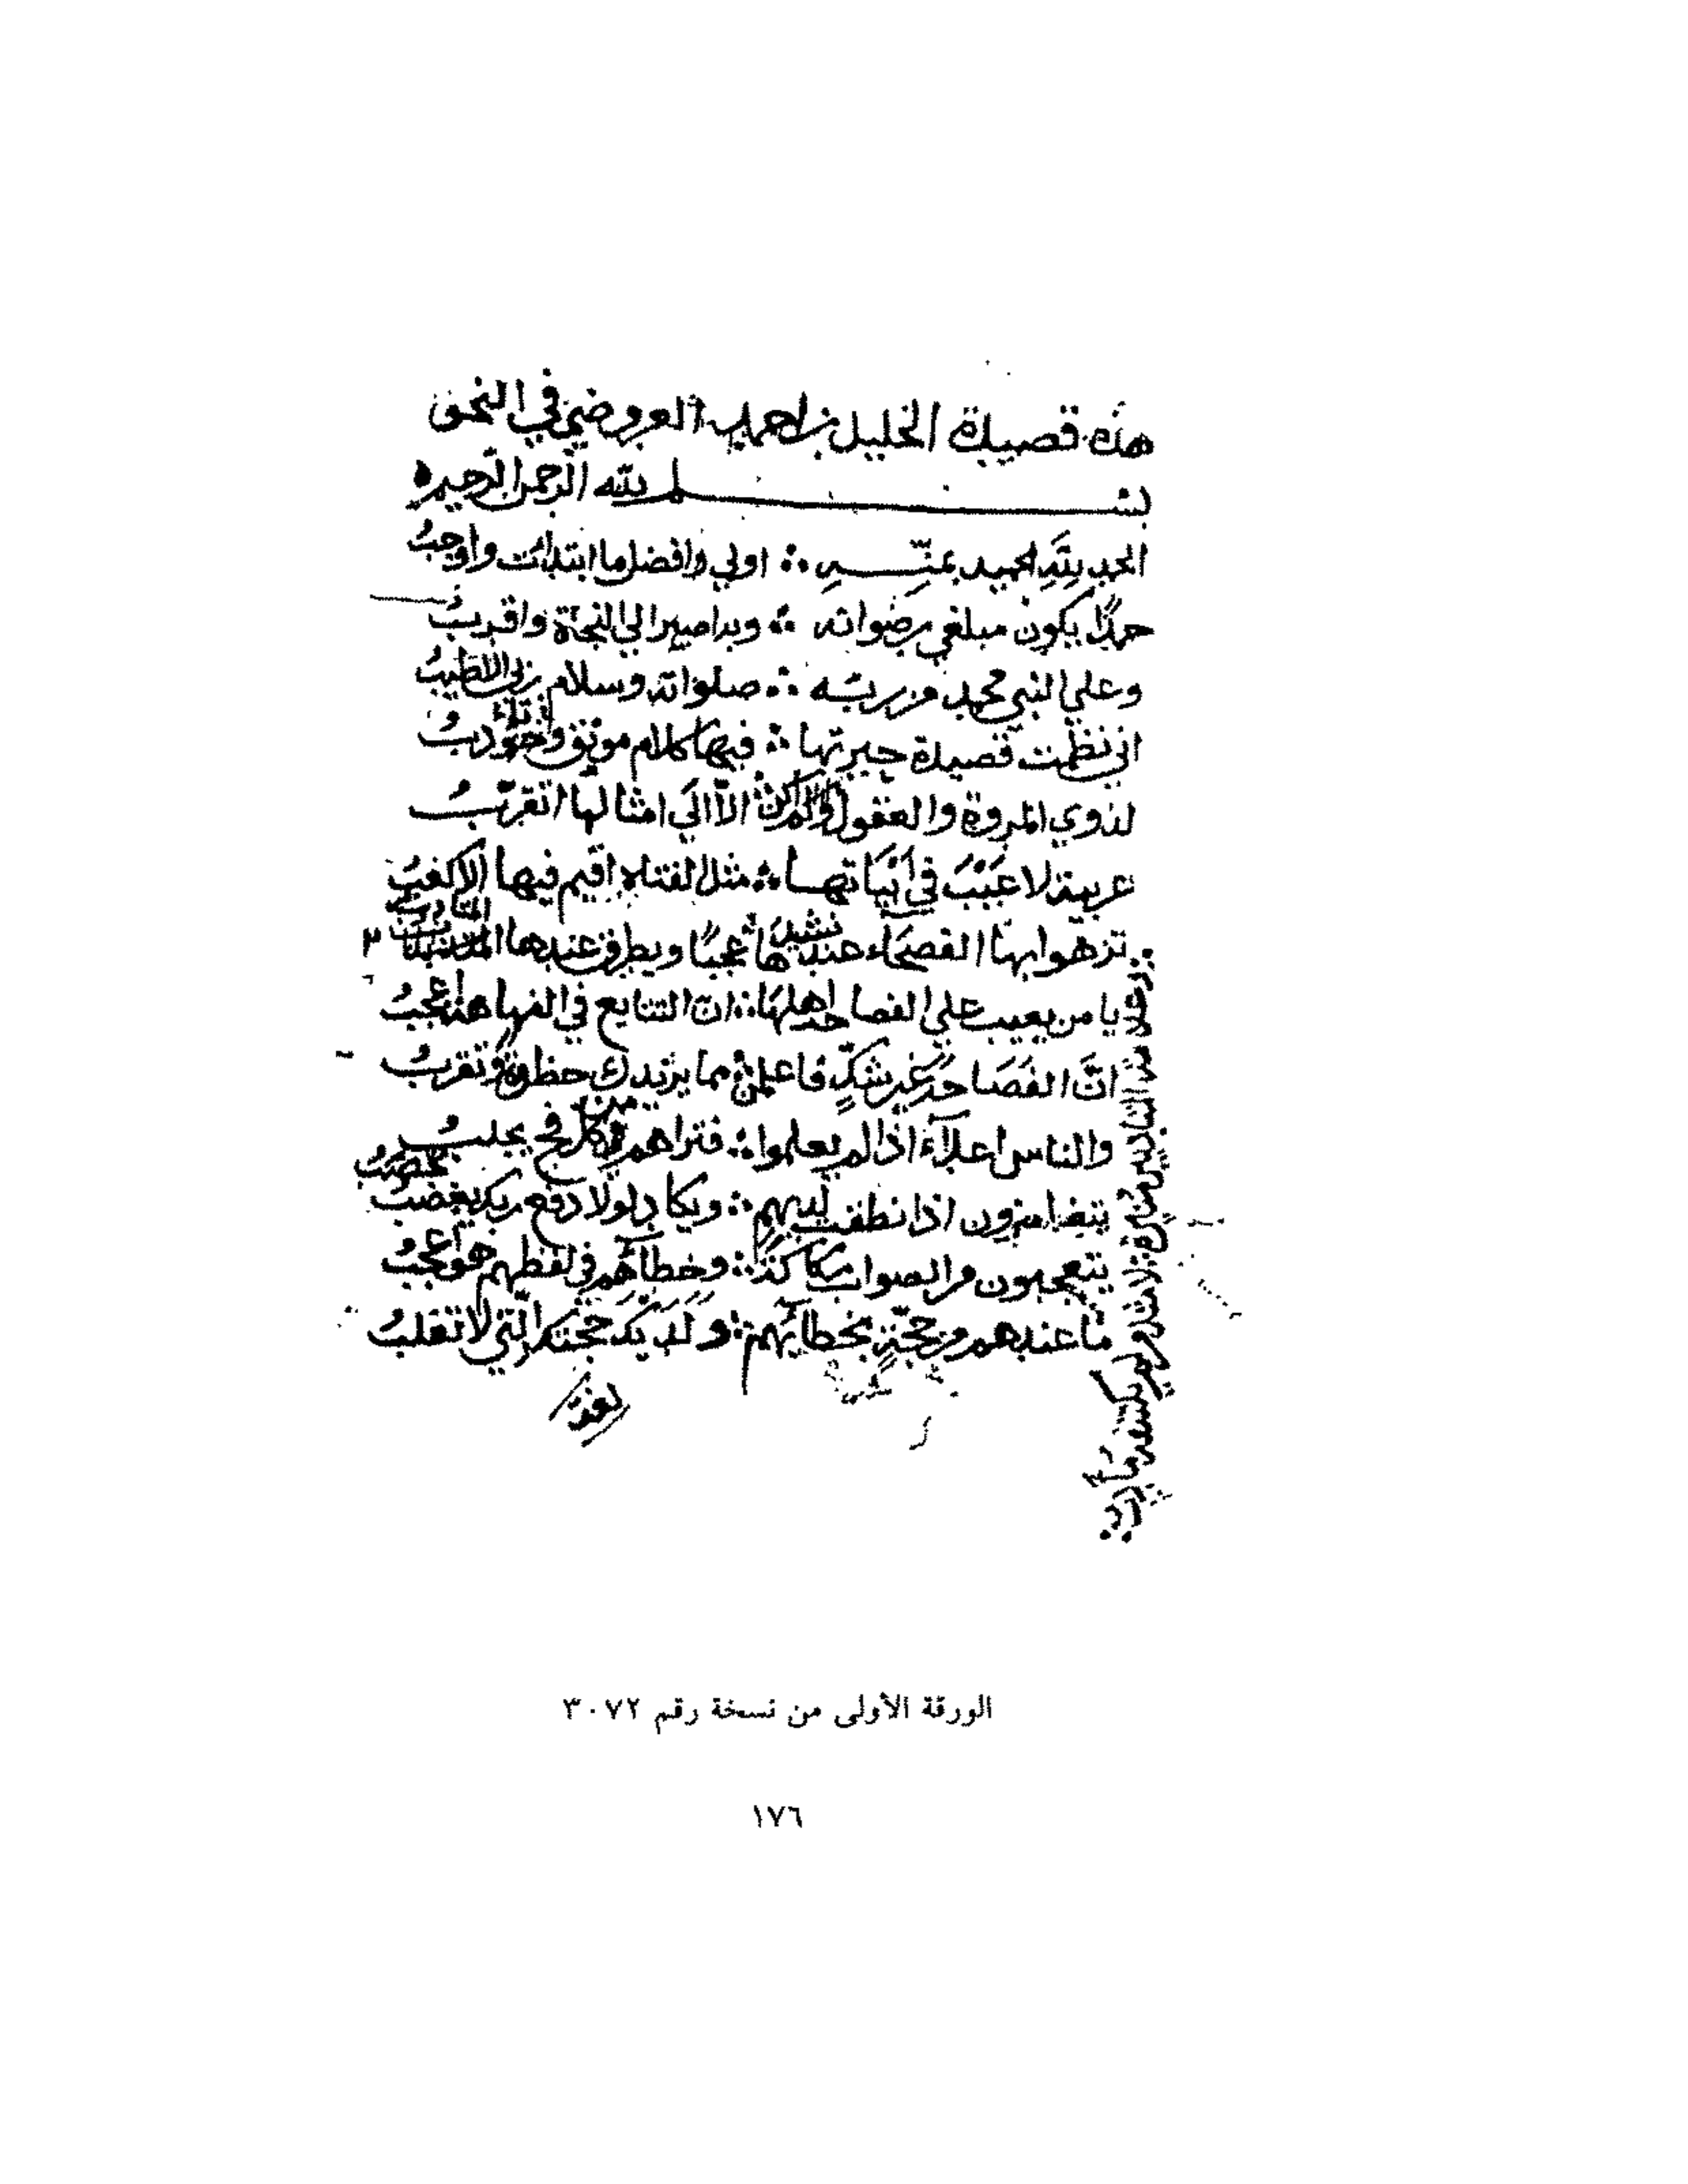 هذه قصيدة الخليل بن احمد العروضي في النحو
بسم الله الرحمن الرحيم
الحمد لله الحميد بمنّه ∴ اولي وافضل ما ابتدات واوجبُ
حمدًا يكون مبلغي رضوانه ∴ وبه اصير الي النجاة واقربُ
وعلي النبي محمد من ربه ∴ صلواته وسلام ربي الاطيبُ
اني نظمت قصيدة حبرتها ∴ فيها كلام مونق وتادبُ
لذوي المروة والعقول ولم اكن ∴ الا الي امثالها اتقربُ
عربية لا عَيْبَ في أبْيَاتها ∴ مثل القناة اقيم فيها الاكعبُ
تزهوا بها الفصحاء عند نشيدها ∴ عجبًا ويطرق عندها المتادب
يا من يعيب علي الفصاحة اهلها ∴ ان التتايع في الفهاهة اعجبُ
انَّ الفَصَاحة غير شكٍّ فاعلمن ∴ مما يزيدك حظوة وتقربُ
والناس اعداء اذا لم يعلموا ∴ فتراهم من كل فج يجلبُ
يتغامزون اذا نطقت لديهم ∴ ويكاد لولا دفع ربك يغضبُ
يحصبُ
يتعجبون من الصواب وخطاؤهم في لفظهم هو اعجبُ
ما عندهم من حجّةٍ بخطائهم ∴ ولديك حجتك التي لا تغلبُ
الورقة الأولى من نسخة رقم ٣٠٧٢
١٧٦